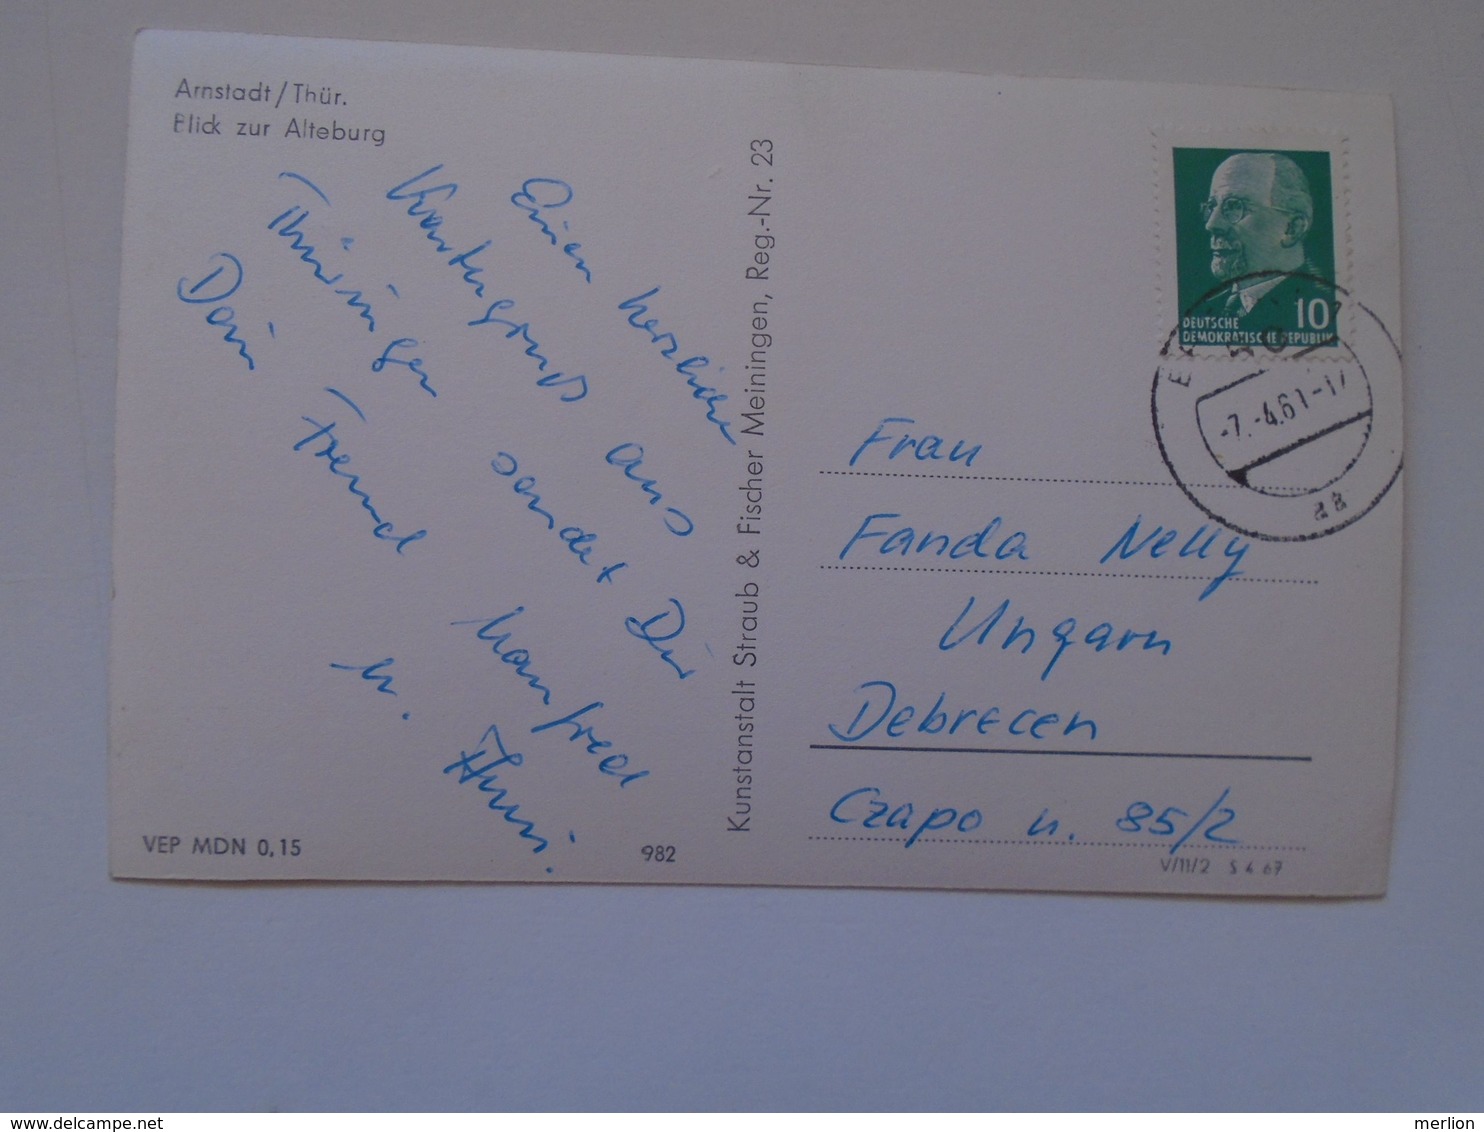 Arnstadt/Thür.
Blick zur Alteburg
Einen herzlichen
Kartengruß aus
Thüringen sendet Dir
Dein Freund Manfred
u.
VEP MDN 0,15
982
Kunstanstalt Straub & Fischer Meiningen, Reg.-Nr. 23
10
DEUTSCHE
DEMOKRATISCHE REPUBLIK
-7.-4.61-17
aa
Frau
Fanda Nelly
Ungarn
Debrecen
Czapo u. 85/2
V/11/2 S 4 67
merlion